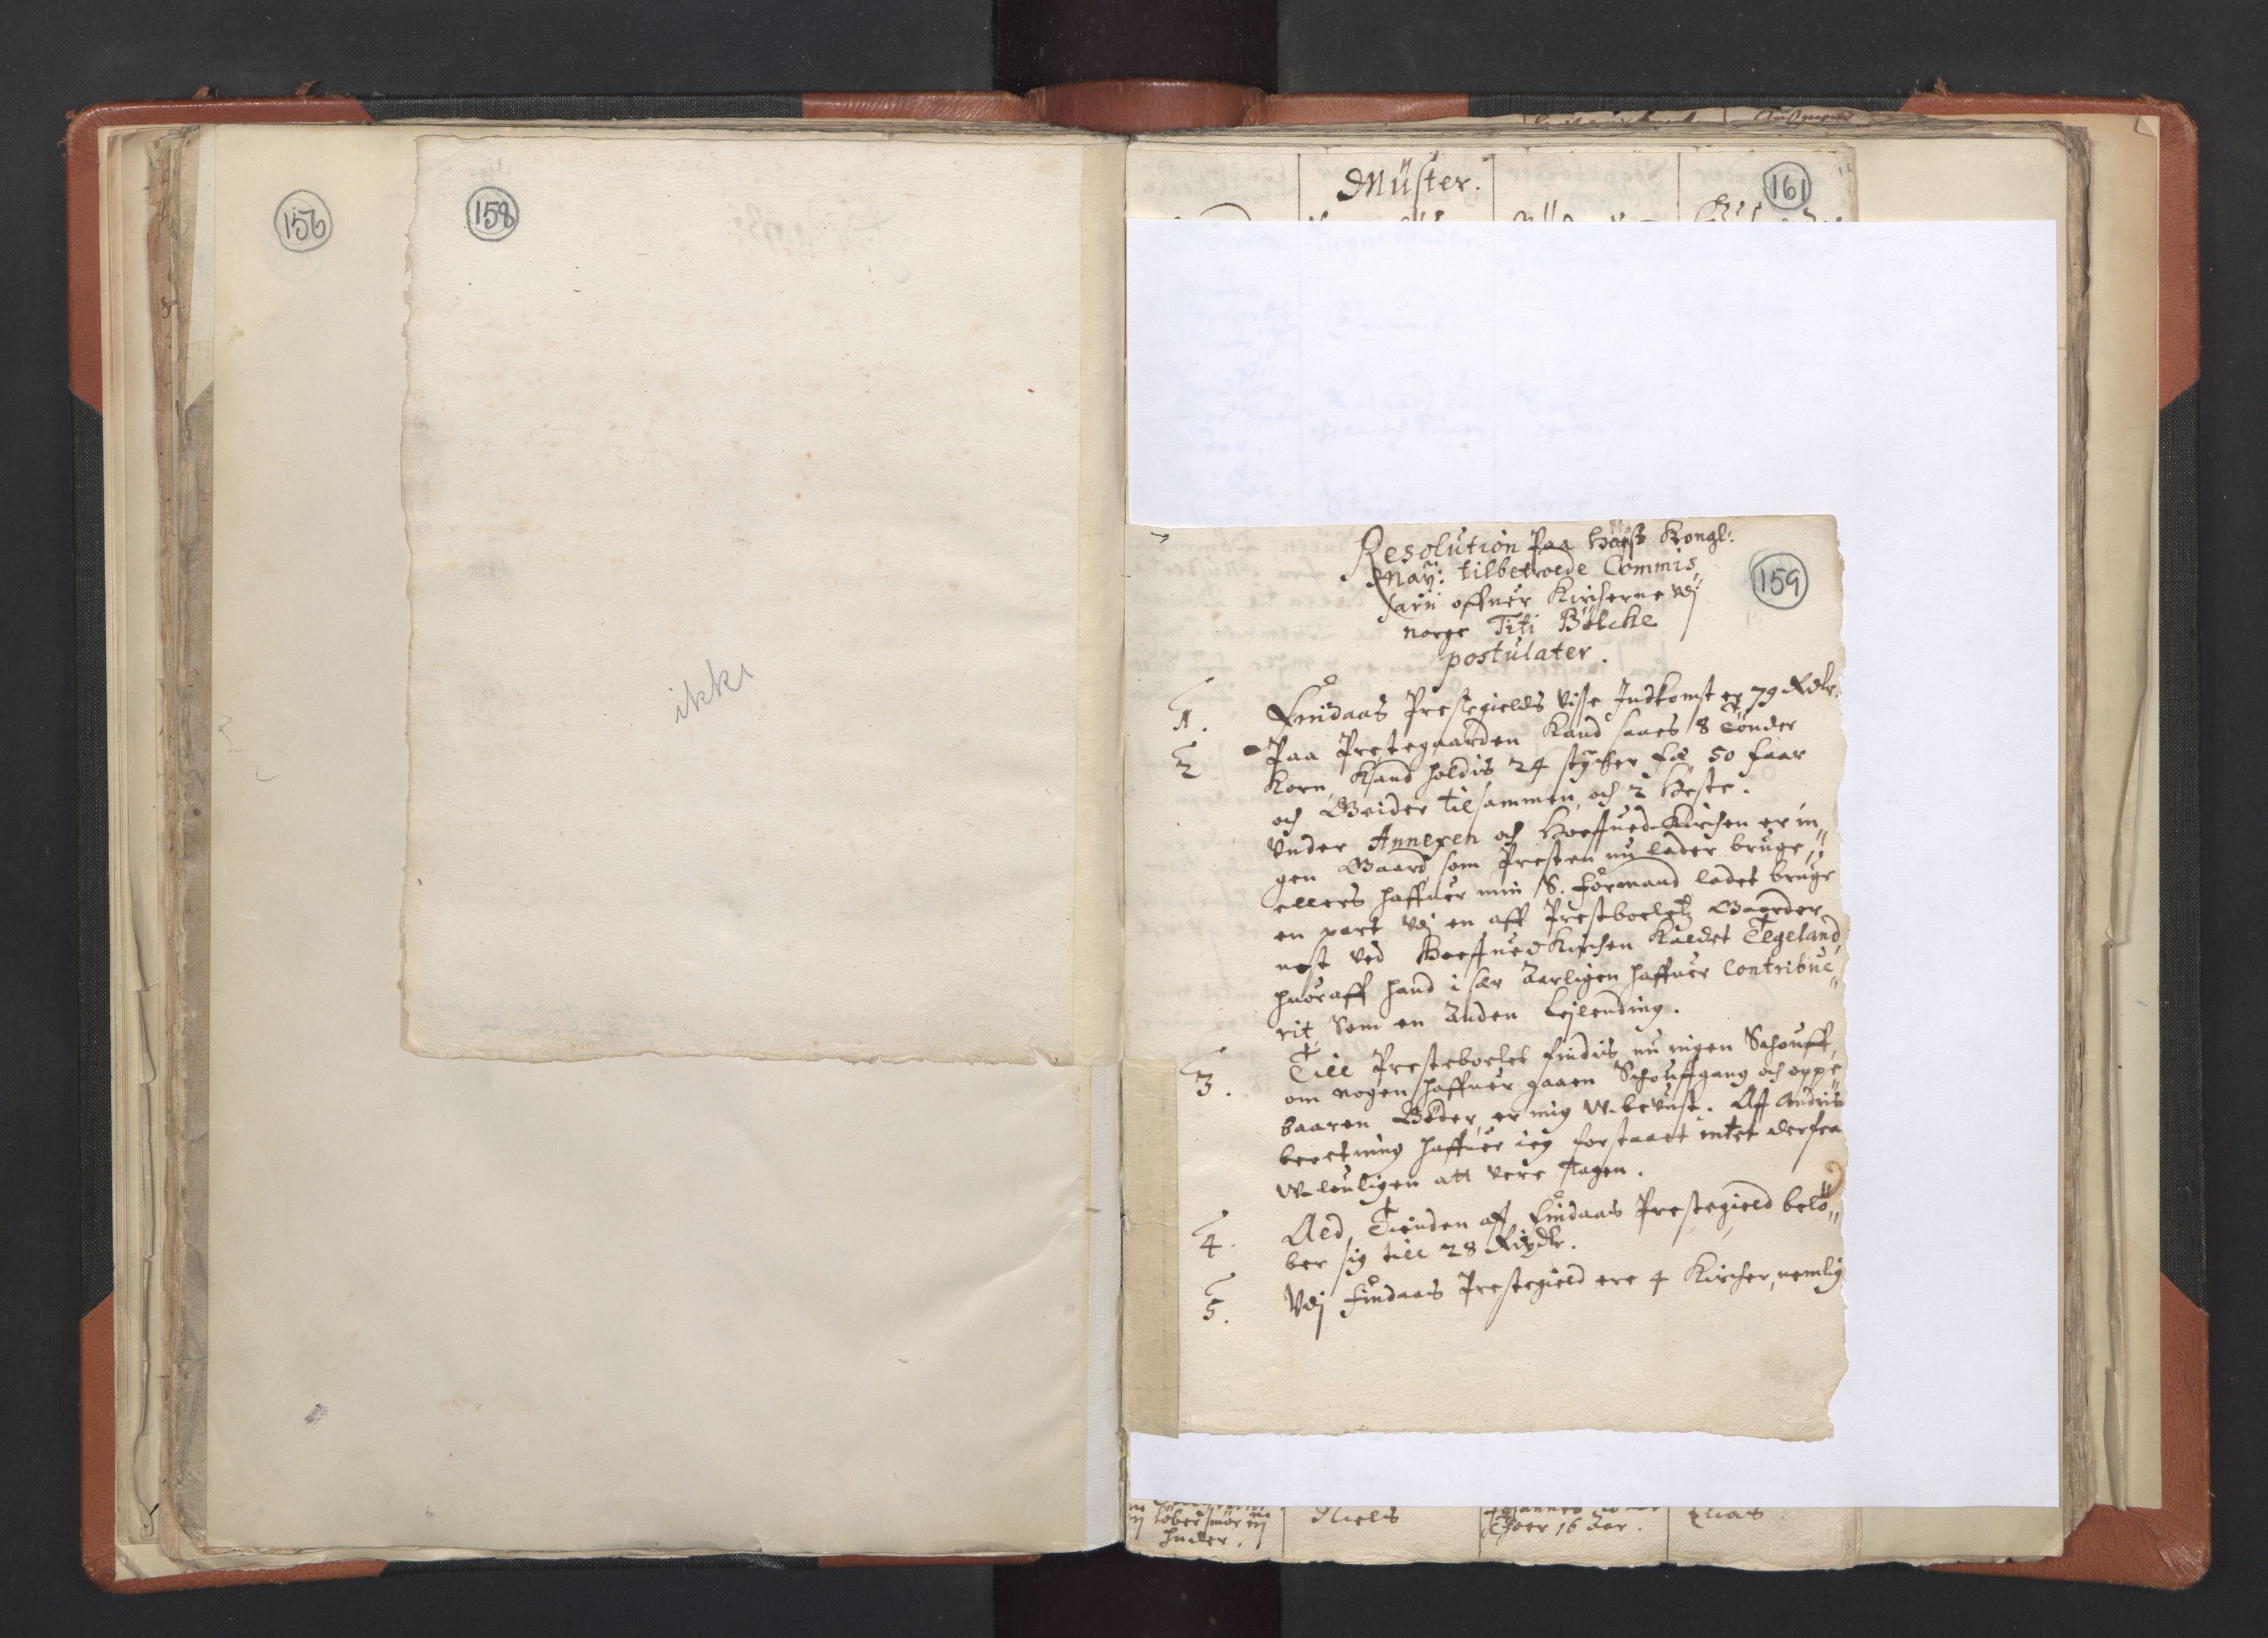 156
158
ikke
Müster.
161
159
Resolution Paa Hans Kongl:
May: tilbetroede Commis,
sarii offuer Kircherne vdj
Norge Titi Bølcke
postulater.
1. Findaas Prestegields visse Indkomst er 79 Rdlr.
2 Paa Prestegaarden Kand saaes 8 Tønder
Korn, Kand holdis 24 stycher fæ, 50 faar
och Geider tilsammen, och 2 Heste.
Vnder Annexen och Hoffued Kirchen er in„
gen Gaard, som Presten nu lader bruge,
ellers haffuer min S. formand ladet bruge
en part vdj en aff Prestboeletz Gaarder
nest ved HoffuedKirchen Kaldet Tegeland,
huoraff hand i sær Aarligen haffuer Contribue„
rit, Som en Anden Lejlending.
3. Till Presteboelet findis nu ingen Schouff,
om nogen haffuer gaaen Schouffgang och oppe„
baaren Bøder, er mig W-bevust. Aff Andris
beretning haffuer ieg forstaaet intet derfra
W-louligen att vere tagen.
4. Ald Tienden aff Findaas Prestegield belø„
ber sig till 28 Rixdlr.
5. Vdj Findaas Prestegield ere 4 Kircher, nemlig
løber smør
Niels
16 Aar.
Elias
huder.